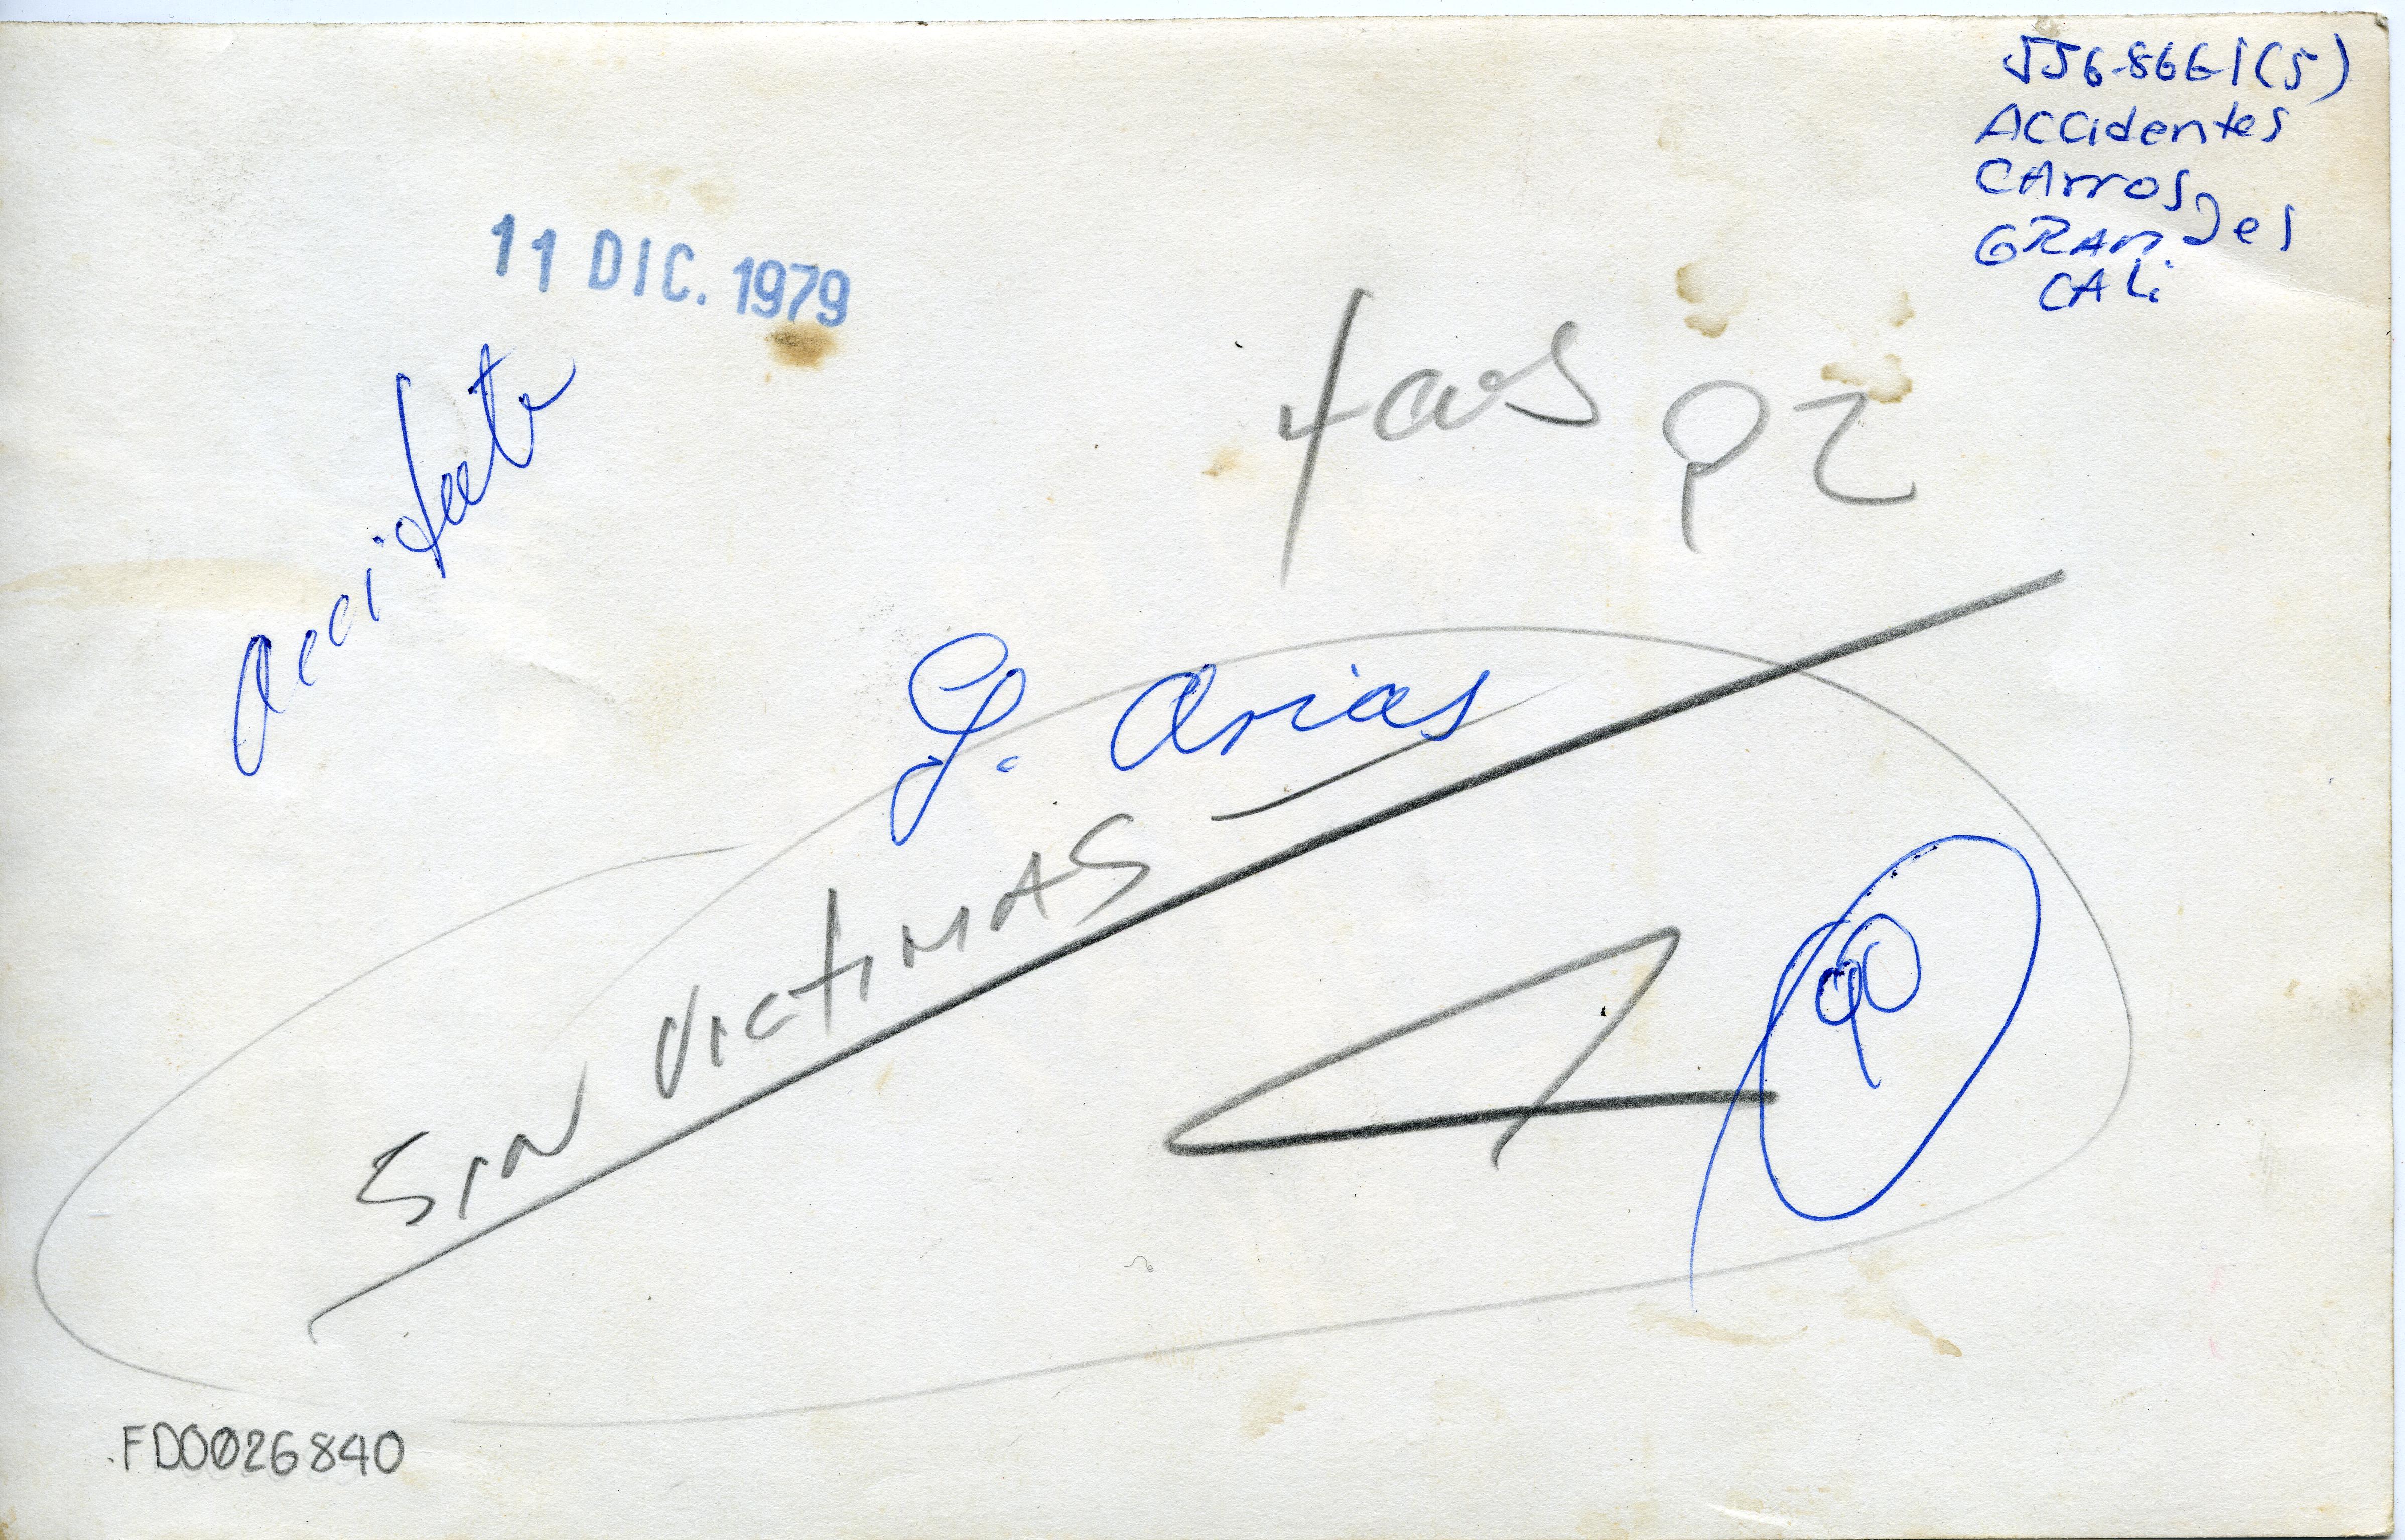 JJ6-8661(5)
Accidentes
CArros
GRANdes
CALi
11 DIC. 1979
Accidente
4 cols P2
J. Arias
SIN VICTIMAS
90
FD0026840